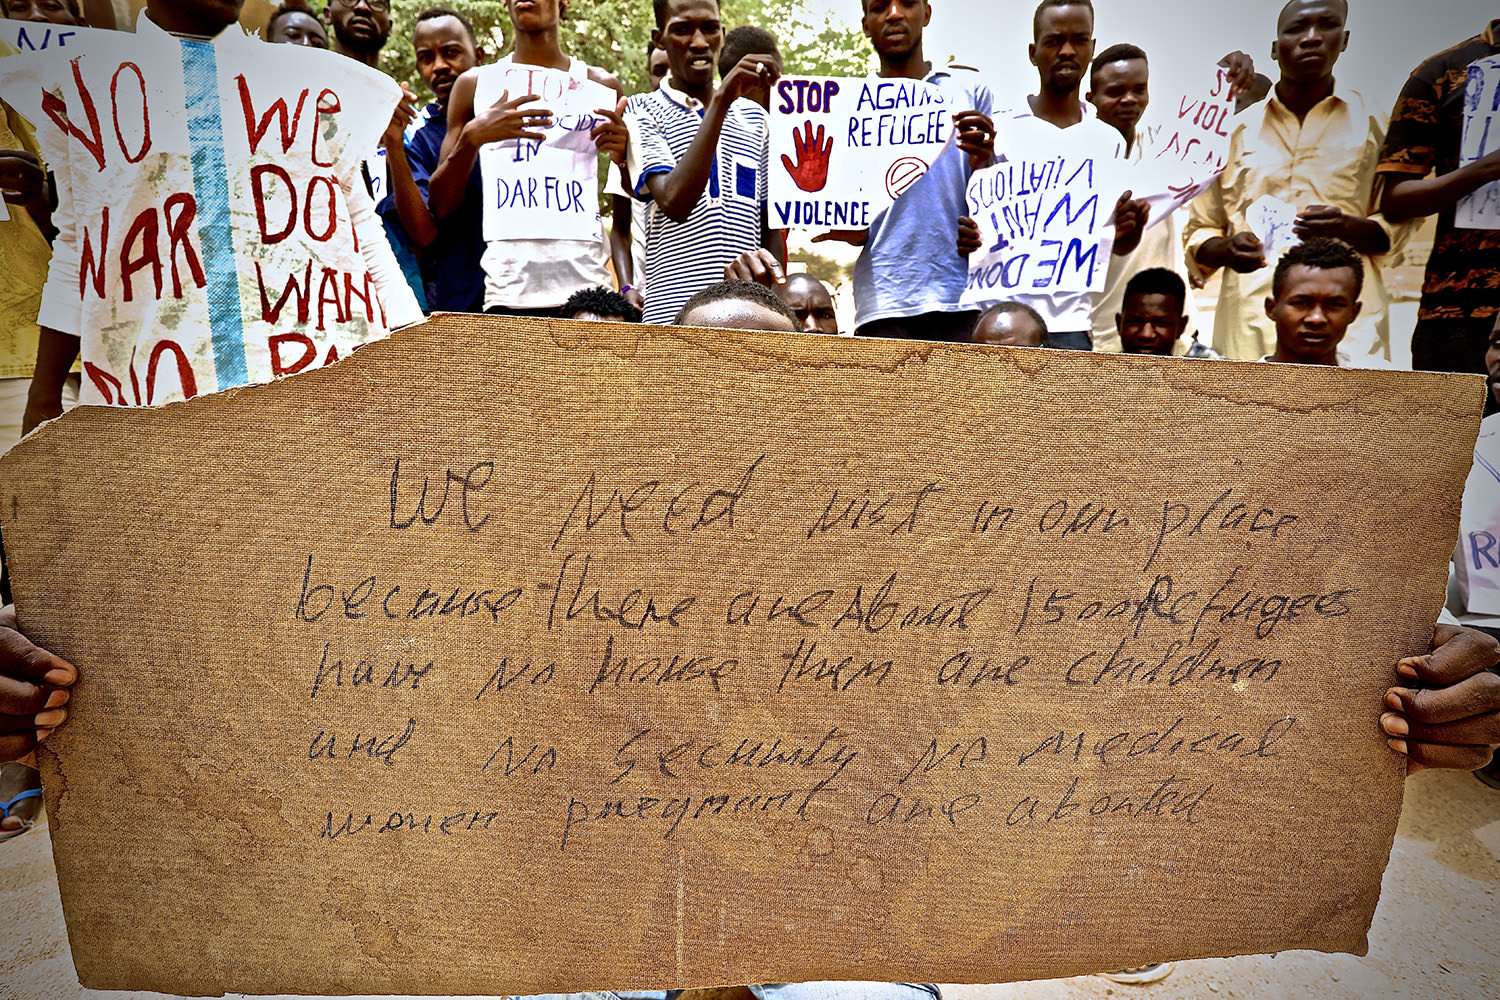 NO
WAR
NO
We
DO
WANT
STOP
IN
DARFUR
STOP
VIOLENCE
AGAINS
REFUGEE
WE DON
WANT
VilATIONS
ST
VIOL
AGAI
We Need visit in our place
because there are About 1500 Refugees
have No house them are children
and No Security No medical
women pregnant are aborted